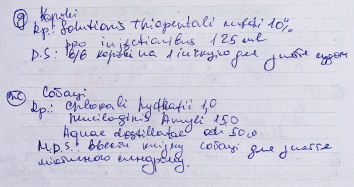 Корові
Rp.: Solutionis thiopentali natrii 10%
pro injectionibus 125 ml
D.S.: в/в корові на 1 ін'єкцію для зняття судом
Собаці
Rp.: Chlorali hydratis 1,0
Mucilaginis Amyli 15,0
Aquae destillatae ad 50,0
M.D.S.: Ввести в клізму собаці для зняття
синдрому.